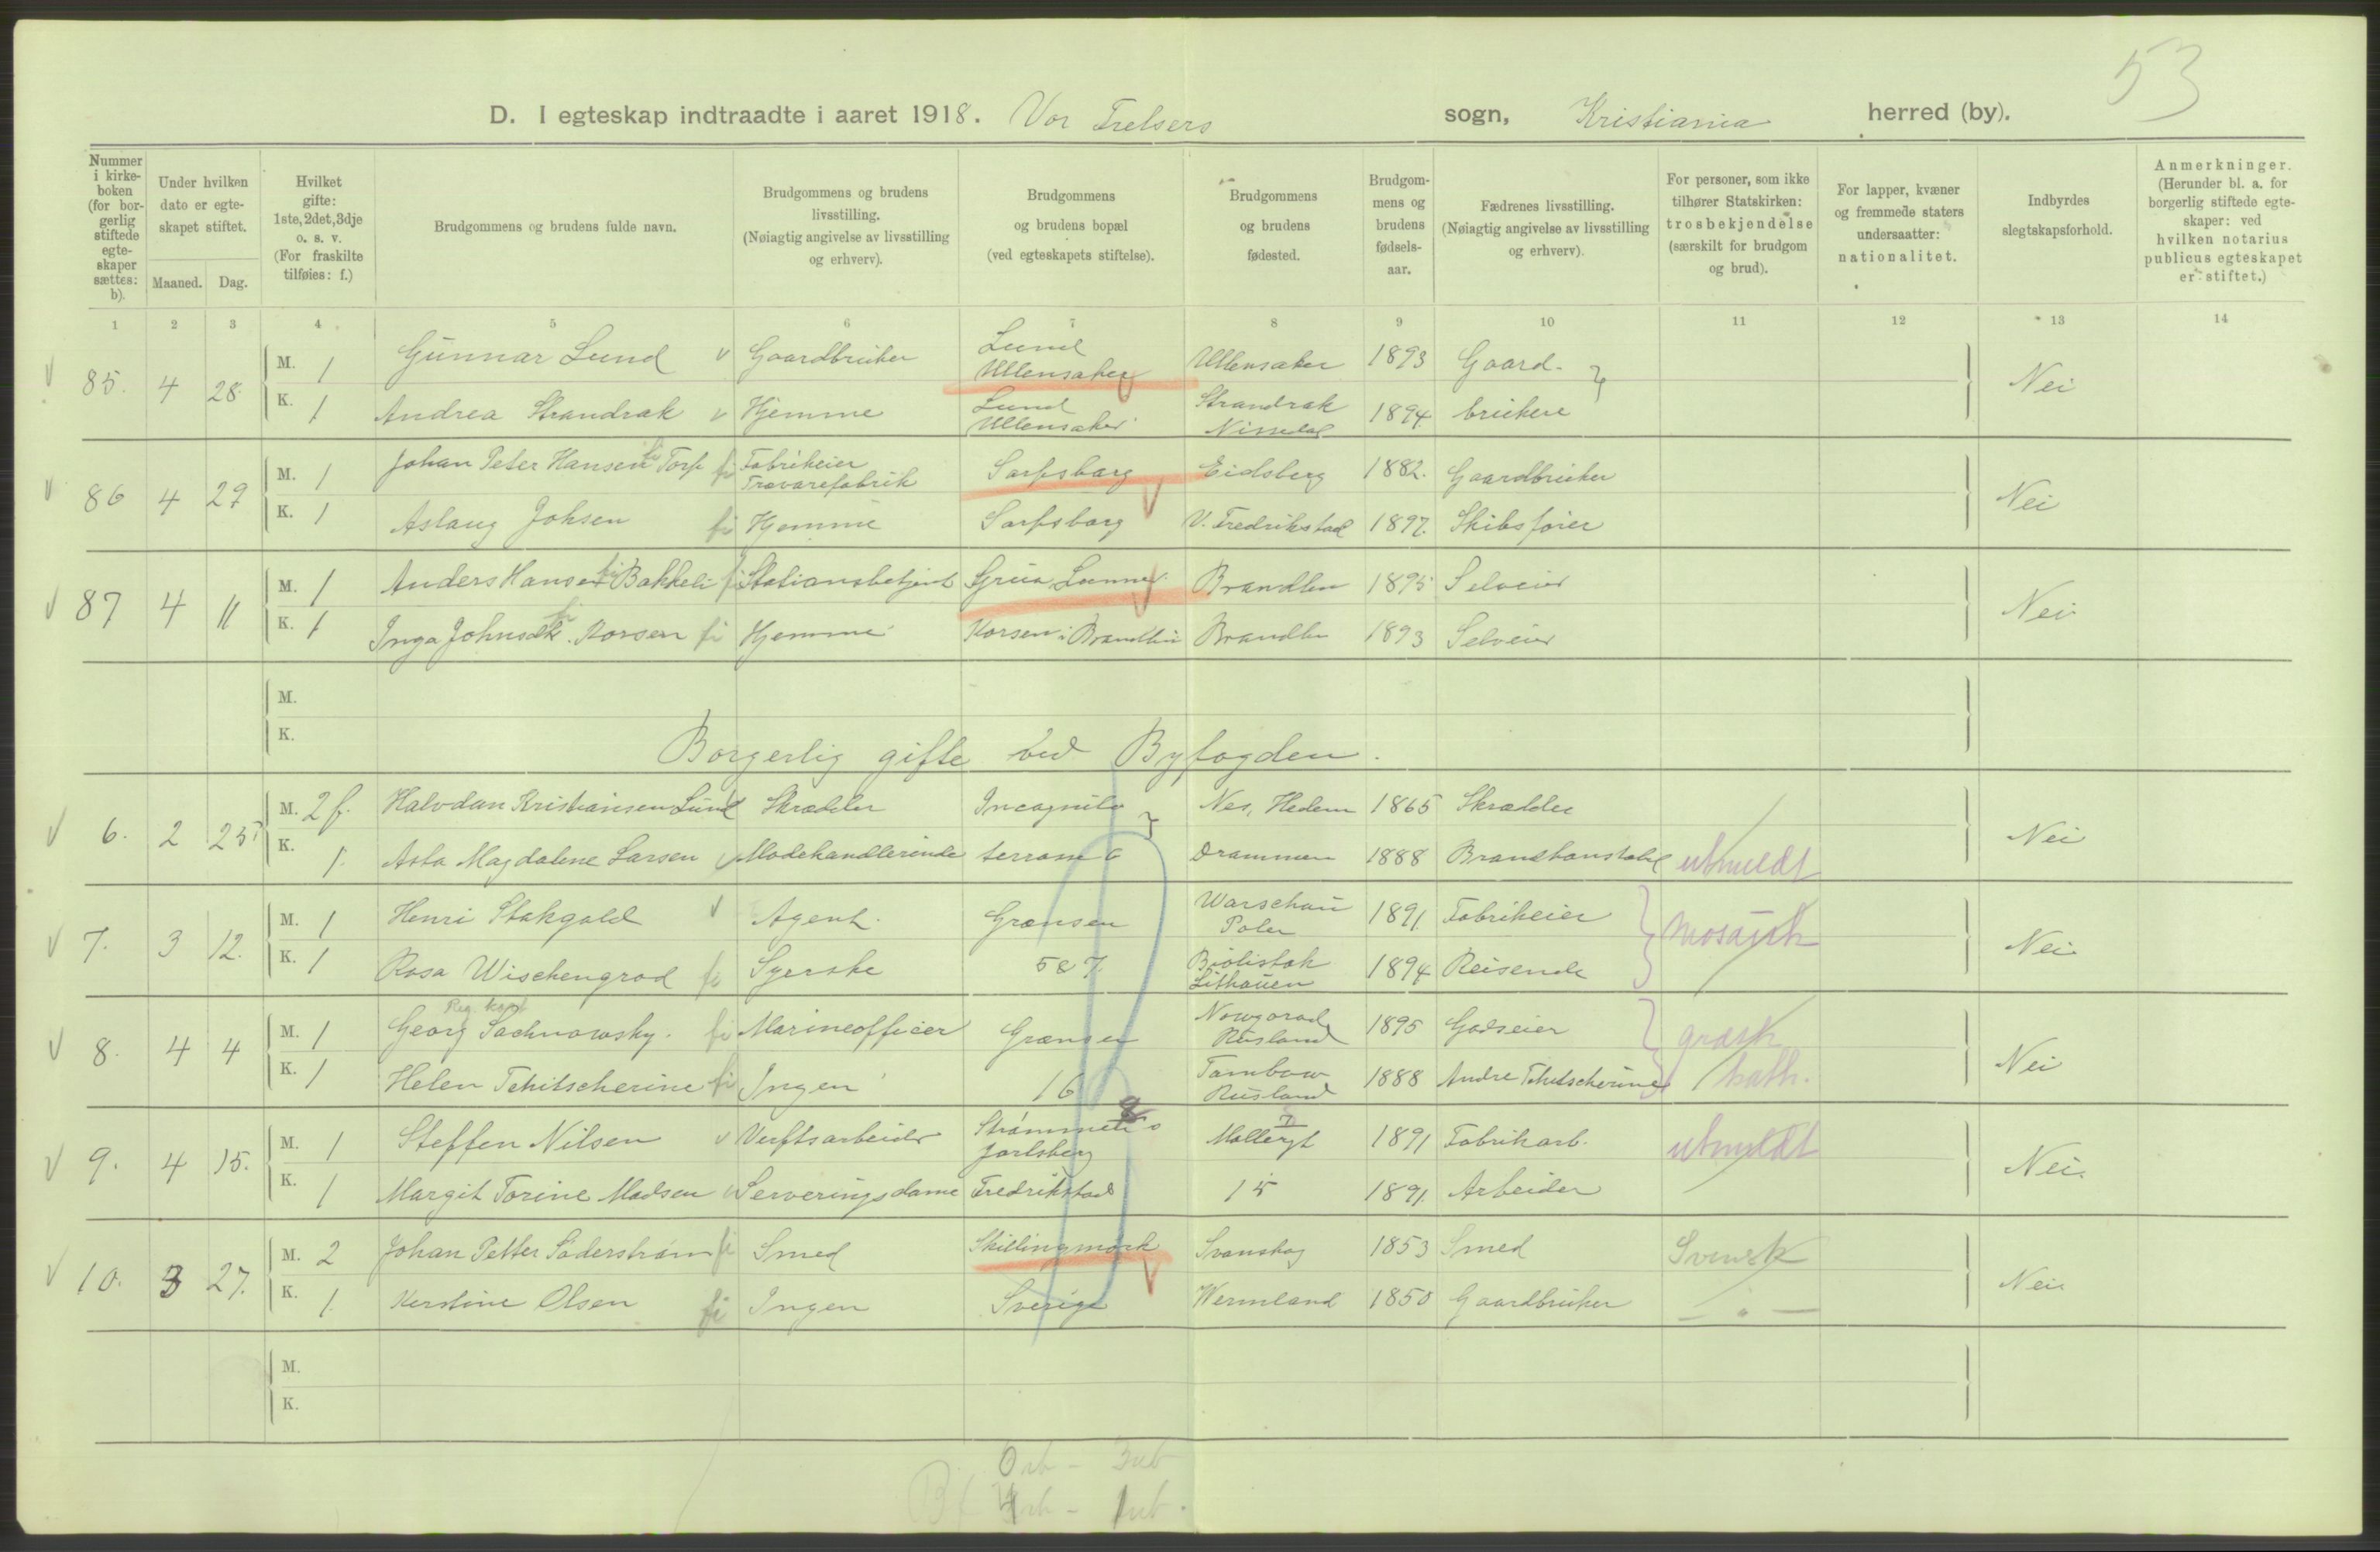 53
D. I egteskap indtraadte i aaret 1918. Vor Frelsers sogn, Kristiania herred (by).
Nummer i kirkeboken (for borgerlig stiftede egteskaper sættes: b).
Under hvilken dato er egteskapet stiftet.
Maaned. Dag.
Hvilket gifte: 1ste, 2det, 3dje o. s. v. (For fraskilte tilføies: f.)
Brudgommens og brudens fulde navn.
Brudgommens og brudens livsstilling. (Nøiagtig angivelse av livsstilling og erhverv).
Brudgommens og brudens bopæl (ved egteskapets stiftelse).
Brudgommens og brudens fødested.
Brudgommens og brudens fødselsaar.
Fædrenes livsstilling. (Nøiagtig angivelse av livsstilling og erhverv).
For personer, som ikke tilhører Statskirken: trosbekjendelse (særskilt for brudgom og brud).
For lapper, kvæner og fremmede staters undersaatter: nationalitet.
Indbyrdes slegtskapsforhold.
Anmerkninger. (Herunder bl. a. for borgerlig stiftede egteskaper: ved hvilken notarius publicus egteskapet er stiftet.)
1 2 3 4 5 6 7 8 9 10 11 12 13 14
85. 4 28. M. 1 Gunnar Lund Gaardbruker Lund Ullensaker Ullensaker 1893 Gaard- Nei
K. 1 Andrea Strandrak Hjemme Lund Ullensaker Strandrak Nissedal 1894 brukere
86 4 29 M. 1 Johan Peter Hansen Torp Fabrikeier Trævarefabrik Sarpsborg Eidsberg 1882. Gaardbruker Nei
K. 1 Aslaug Johsen Hjemme Sarpsborg V. Fredrikstad 1897. Skibsfører
87 4 11 M. 1 Anders Hansen Bakkeli Stationsbetjent Grua, Lunner Brandbu 1895 Selveier Nei
K. 1 Inga Johnsdt. Korsen Hjemme Korsen i Brandbu Brandbu 1893 Selveier
M.
K.
Borgerlig gifte ved Byfogden.
6. 2 25 M. 2 f. Halvdan Kristiansen Lund Skrædder Incognito Nes, Hedem 1865 Skrædder Nei
K. 1. Asta Magdalene Larsen Modehandlerinde terrasse 6 Drammen 1888 Brandkonstabel utmeldt
7. 3 12. M. 1 Henri Stokgold Agent. Grænsen Warschau Polen 1891. Fabrikeier mosaisk Nei
K. 1 Rosa Wischengrod Syerske 587 Biolistok Lithauen 1894 Reisende
8. 4 4 M. 1 Georg Sachnowsky. Marineofficer Grænsen Nowgorod Rusland 1895 Godseier græsk Nei
K. 1 Helen Tchitscherine Ingen 16 Tambow Rusland 1888 Andre Tchitscherine kath.
9. 4 15. M. 1 Steffen Nilsen Verftsarbeider Strømmen Jarlsberg Møllergt 1891 Fabrikarb. utmeldt Nei.
K. 1 Margit Torine Madsen Serveringsdame Fredrikstad 15 1891. Arbeider
10. 3 27. M. 2 Johan Petter Søderstrøm Smed Skillingmark Svanskog 1853 Smed Svensk Nei
K. 1. Kerstine Olsen Ingen Sverige Wermland 1850 Gaardbruker — " —
M.
K.